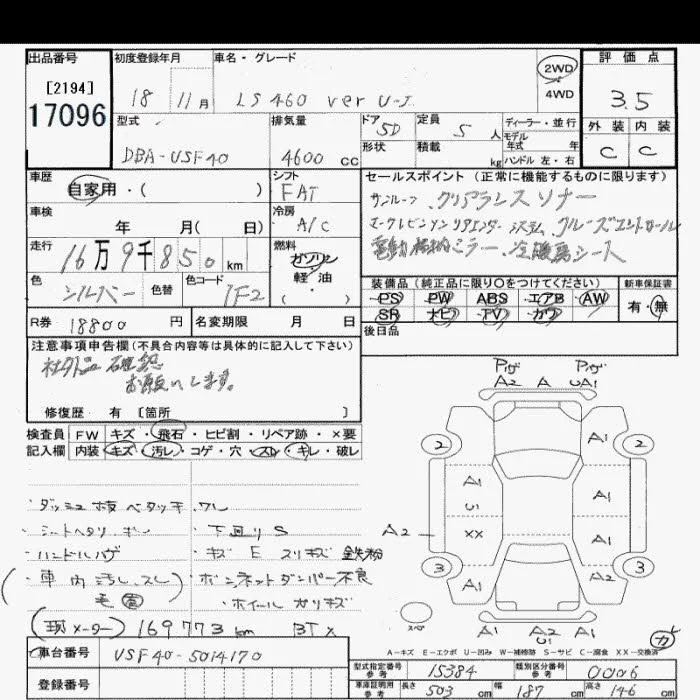 出品番号
[2194]
17096
初度登録年月
18 11月
車名・グレード
LS460 ver U-I
2WD
4WD
評価点
3.5
外装 内装
C C
型式
DBA-USF40
排気量
4600 cc
ドア 5D
形状
定員 5 人
積載 kg
ディーラー・並行
モデル年式 年
ハンドル 左・右
車歴
自家用・( )
シフト
FAT
車検
年 月( 日)
冷房
A/C
走行
16万9千850km
燃料
ガソリン
軽・油
( )
色
シルバー
色替
色コード
1F2
R券 18800 円
名変期限 月 日
セールスポイント (正常に機能するものに限ります)
サンルーフ、クリアランスソナー
システム、クルーズコントロール
電動格納ミラー、冷暖房シート
装備品 (純正品に限り〇をつけてください)
PS PW ABS エアB AW
SR ナビ TV カワ
新車保証書
有・無
後日品
注意事項申告欄(不具合内容等は具体的に記入して下さい)
社外品 確認
お願いします。
修復歴 有 [箇所 ]
検査員記入欄
FW キズ・飛石・ヒビ割・リペア跡・×要
内装 キズ・汚レ・コゲ・穴・スレ・キレ・破レ
・シートヘタリ
・下廻りS
・キズ E スリキズ 鉄粉
(・車内汚レ、スレ)
・ボンネットダンパー不良
・ホイールガリキズ
(現メーター) 169773km BT×
車台番号
USF40-5014170
登録番号
Pハゲ Pハゲ
A2 A UA1
2 A1 2
A1 A1
U1
A2 XX A1
3 A1 A1 3
スペア
A1 A2 A1
U1
A-キズ E-エクボ U-凹み W-補修跡 S-サビ C-腐食 XX-交換済
型式指定番号 参考 15384
類別区分番号 参考 0006
車庫証明用 参考 長さ 503 cm 幅 187 cm 高さ 146 cm